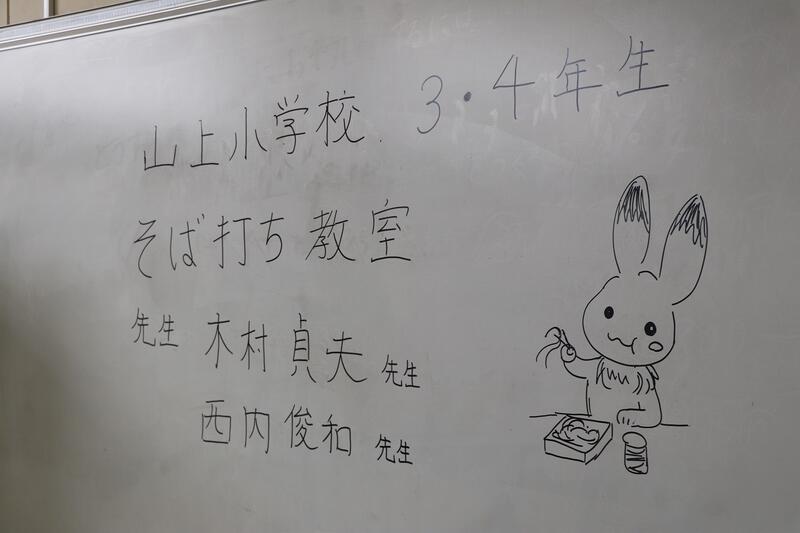 山上小学校 3・4年生
そば打ち教室
先生 木村貞夫 先生
西内俊和 先生